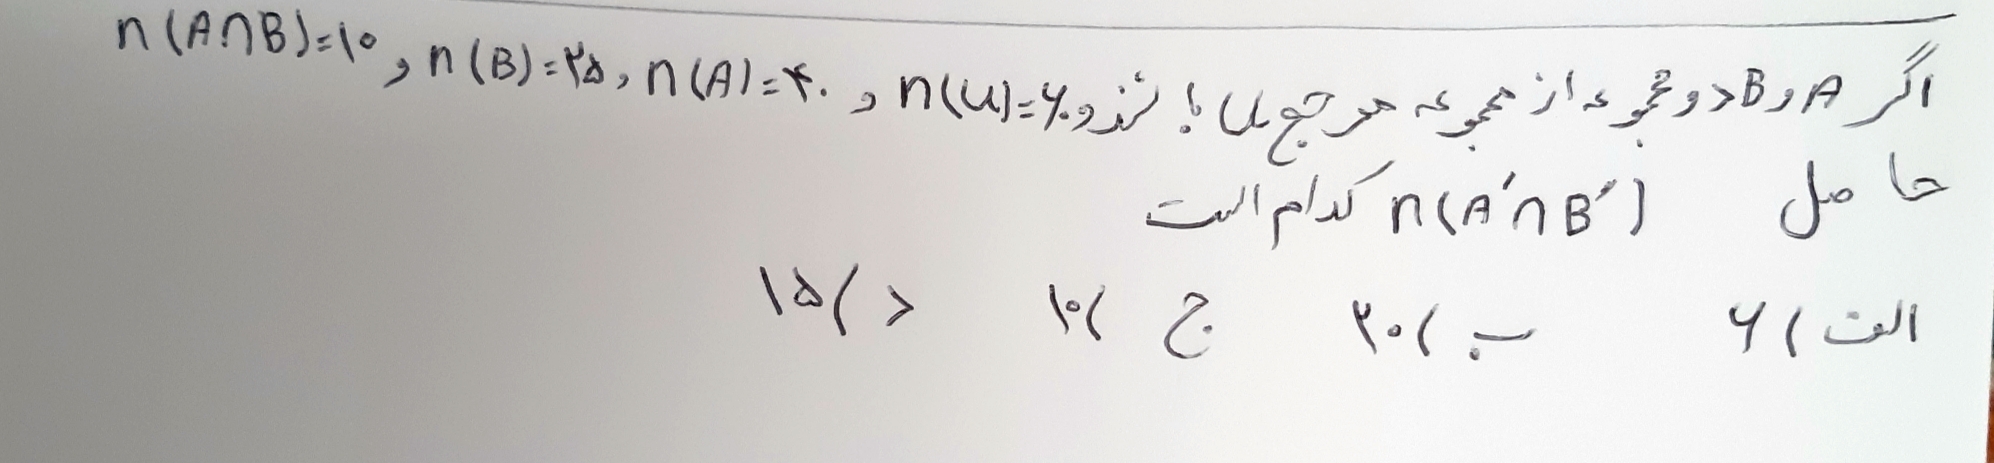 اگر A و B دو مجموعه از مجموعه مرجع U باشند و n(U)=۶۰ و n(A)=۴۰ , n(B)=۲۵ و n(A∩B)=۱۰
حاصل n(A′∩B′) کدام است
الف) ۶ ب) ۲۰ ج) ۱۰ د) ۱۵